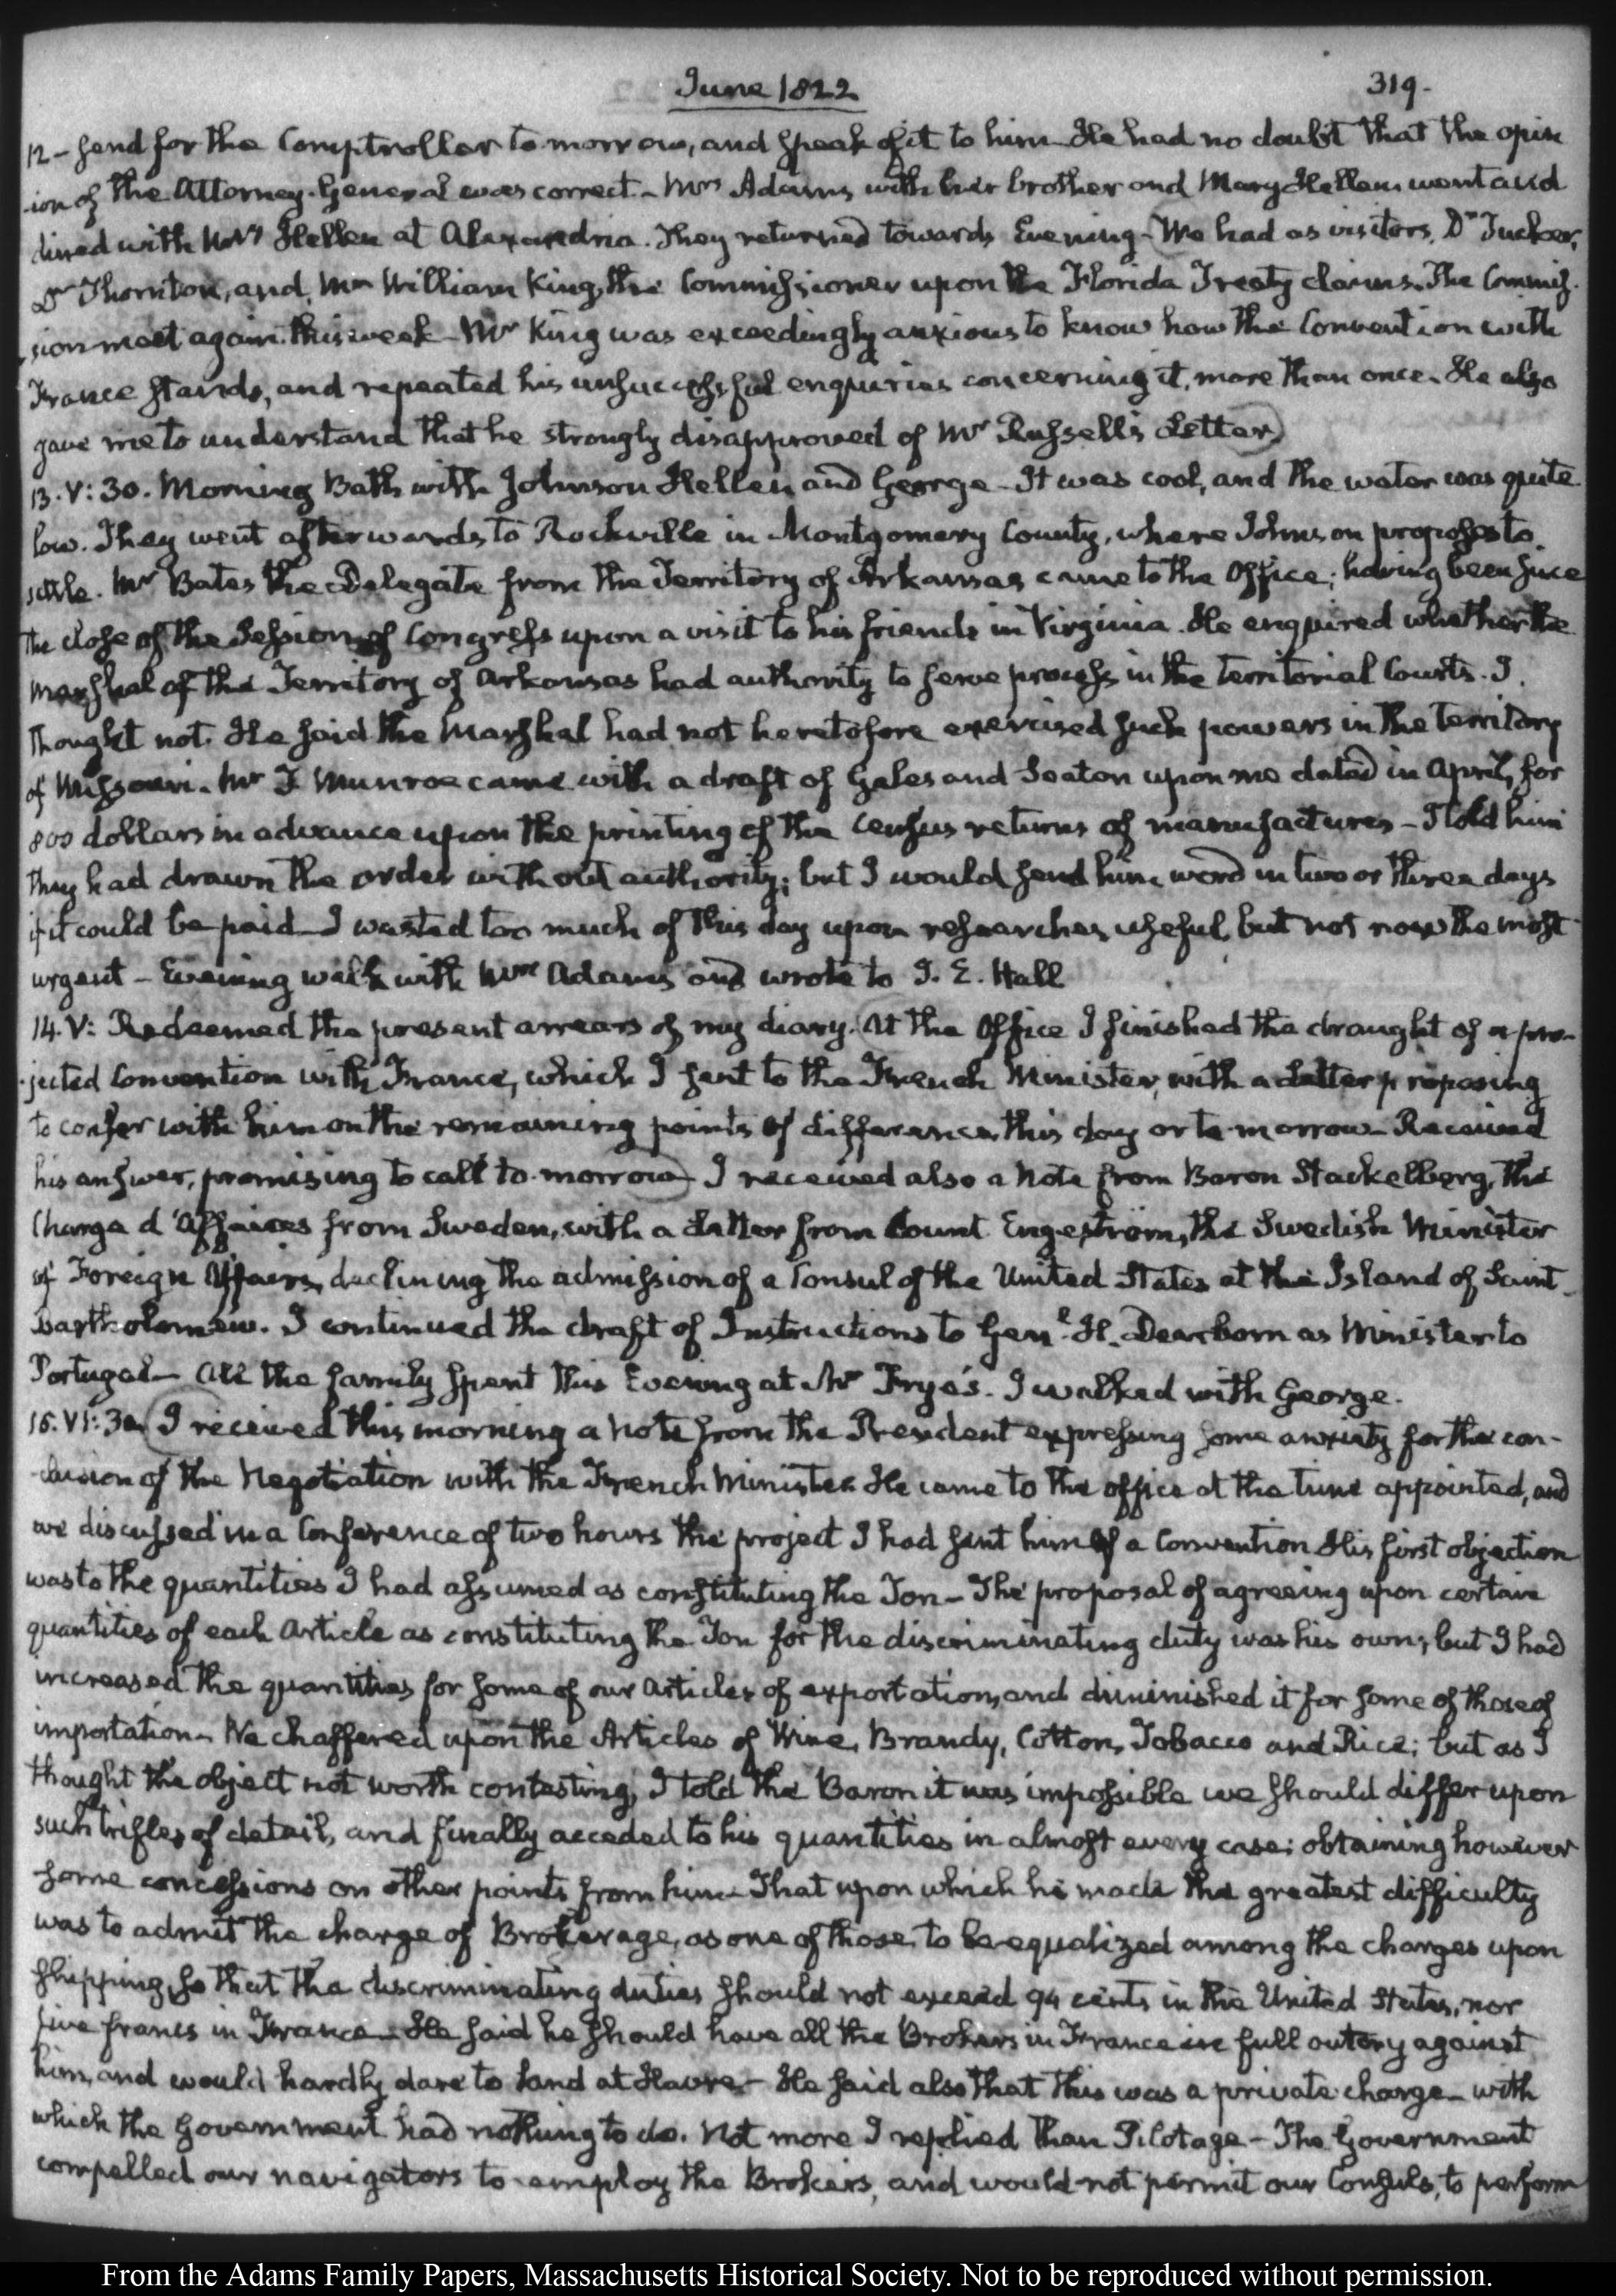 June 1822
319.
12 - send for the Comptroller to-morrow, and speak of it to him. He had no doubt that the opin
-ion of the Attorney-General was correct. - Mrs Adams with her brother and Mary Hellen went and
dined with Mrs Hellen at Alexandria. They returned towards Evening - We had as visitors, Dr Tucker,
Dr Thornton, and Mr William King, the Commissioner upon the Florida Treaty claims. The Commis-
sion meet again this week - Mr King was exceedingly anxious to know how the Convention with
France stands, and repeated his unsuccessful enquiries concerning it, more than once. He also
gave me to understand that he strongly disapproved of Mr Russell's Letter)
13. V:30. Morning Bath with Johnson Hellen and George - It was cool, and the water was quite
low. They went afterwards to Rockville in Montgomery County, where Johnson proposes to
settle. Mr Bates the Delegate from the Territory of Arkansas came to the Office; having been since
the close of the Session of Congress upon a visit to his friends in Virginia. He enquired whether the
Marshal of the Territory of Arkansas had authority to serve process in the Territorial Courts. I
thought not. He said the Marshal had not heretofore exercised such powers in the Territory
of Missouri. Mr T Munroe came with a draft of Gales and Seaton upon me dated in April, for
800 dollars in advance upon the printing of the Census returns of manufactures - I told him
they had drawn the order without authority; but I would send him word in two or three days
if it could be paid - I wasted too much of this day upon researches, useful, but not now the most
urgent - Evening walk with Mrs Adams and wrote to J. E. Hall
14. V: Redeemed the present arrears of my diary. (At the Office I finished the draught of a pro-
-jected Convention with France, which I sent to the French Minister, with a Letter proposing
to confer with him on the remaining points of difference, this day or to-morrow - Received
his answer, promising to call to-morrow) I received also a Note from Baron Stackelberg, the
Charge d'Affaires from Sweden, with a Letter from Count Engeström, the Swedish Minister
of Foreign Affairs, declining the admission of a Consul of the United States at the Island of Saint
Bartholomew. I continued the draft of Instructions to Genl H. Dearborn as Minister to
Portugal - All the family spent this Evening at Mr Frye's. I walked with George.
15. VI:30. (I received this morning a Note from the President expressing some anxiety for the con-
-clusion of the Negotiation with the French Minister. He came to the office at the time appointed, and
we discussed in a Conference of two hours the project I had sent him of a Convention. His first objection
was to the quantities I had assumed as constituting the Ton - The proposal of agreeing upon certain
quantities of each Article as constituting the Ton for the discriminating duty was his own; but I had
increased the quantities for some of our Articles of exportation, and diminished it for some of those of
importation. We chaffered upon the Articles of Wine, Brandy, Cotton, Tobacco and Rice; but as I
thought the object not worth contesting, I told the Baron it was impossible we should differ upon
such trifles of detail, and finally acceded to his quantities in almost every case; obtaining however
some concessions on other points from him - That upon which he made the greatest difficulty
was to admit the charge of Brokerage, as one of those to be equalized among the charges upon
shipping, so that the discriminating duties should not exceed 94 cents in the United States, nor
five francs in France - He said he should have all the Brokers in France in full outcry against
him, and would hardly dare to land at Havre - He said also that this was a private charge - with
which the Government had nothing to do. Not more I replied than Pilotage - The Government
compelled our navigators to employ the Brokers, and would not permit our Consuls, to perform
From the Adams Family Papers, Massachusetts Historical Society. Not to be reproduced without permission.